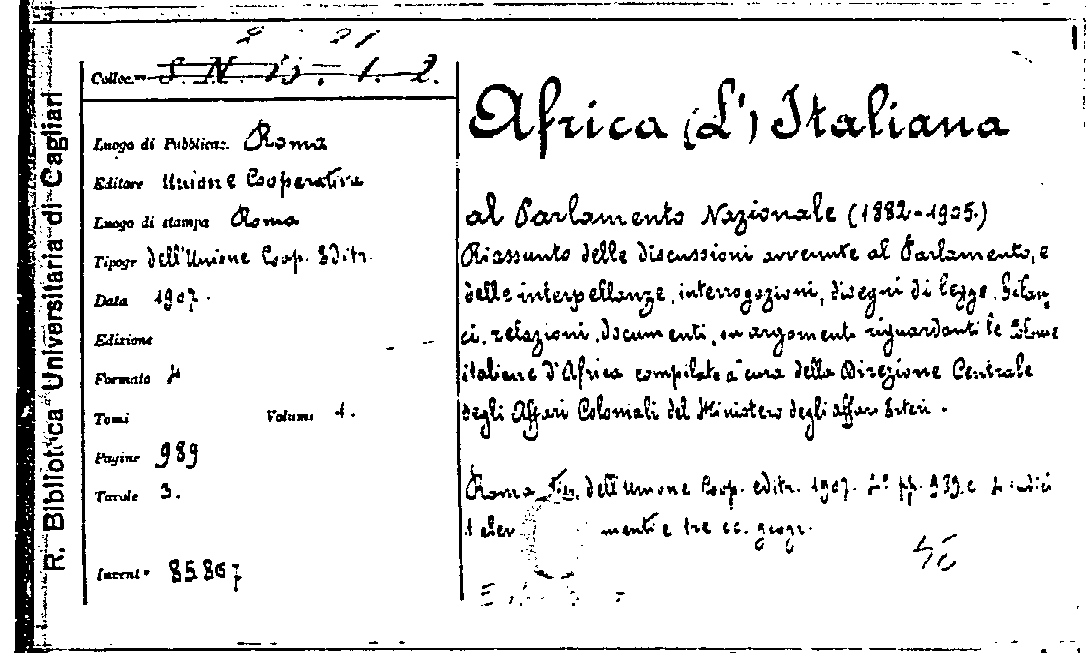 R. Biblioteca Universitaria di Cagliari
Colloc.ne S. N. is. 1. 2.
Luogo di Pubblicaz. Roma
Editore Unione Cooperativa
Luogo di stampa Roma
Tipogr dell'Unione Coop. Editr.
Data 1907.
Edizione
Formato 4
Tomi Volumi 1.
Pagine 989
Tavole 3.
Invent. 85867
Africa (L') Italiana
al Parlamento Nazionale (1882-1905.)
Riassunto delle discussioni avvenute al Parlamento, e
delle interpellanze, interrogazioni, disegni di legge, bilan-
ci, relazioni, documenti, su argomenti riguardanti le Colonie
italiane d'Africa compilato a cura della Direzione Centrale
degli Affari Coloniali del Ministero degli affari Esteri.
Roma Tip. dell'Unione Coop. editr. 1907. 4° pp. 939. e indici
menti e tre cc. geogr.